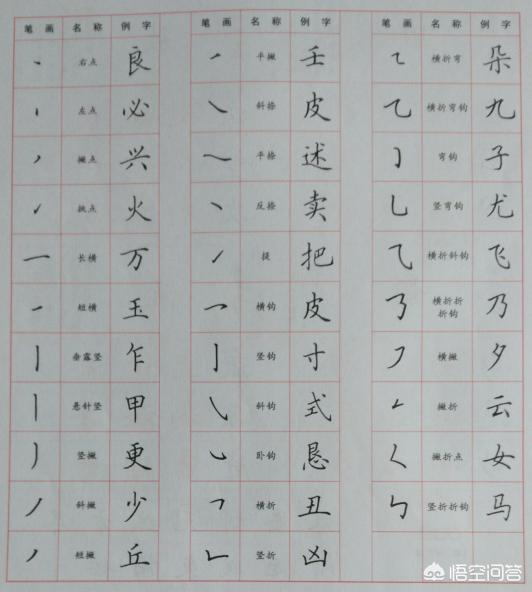 笔画 名称 例字 笔画 名称 例字 笔画 名称 例字
㇔ 右点 良 ㇒ 平撇 壬 ㇍ 横折弯 朵
左点 必 ㇏ 斜捺 皮 ⺄ 横折弯钩 九
撇点 兴 平捺 述 ㇁ 弯钩 子
挑点 火 反捺 卖 ㇟ 竖弯钩 尤
一 长横 万 ㇀ 提 把 ⺄ 横折斜钩 飞
短横 玉 ㇖ 横钩 皮 ㇡ 横折折折钩 乃
丨 垂露竖 乍 亅 竖钩 寸 ㇇ 横撇 夕
丨 悬针竖 甲 ㇂ 斜钩 式 ㇜ 撇折 云
㇓ 竖撇 更 ㇃ 卧钩 恳 ㇛ 撇折点 女
丿 斜撇 少 ㇕ 横折 丑 ㇉ 竖折折钩 马
短撇 丘 ㇗ 竖折 凶
悟空问答